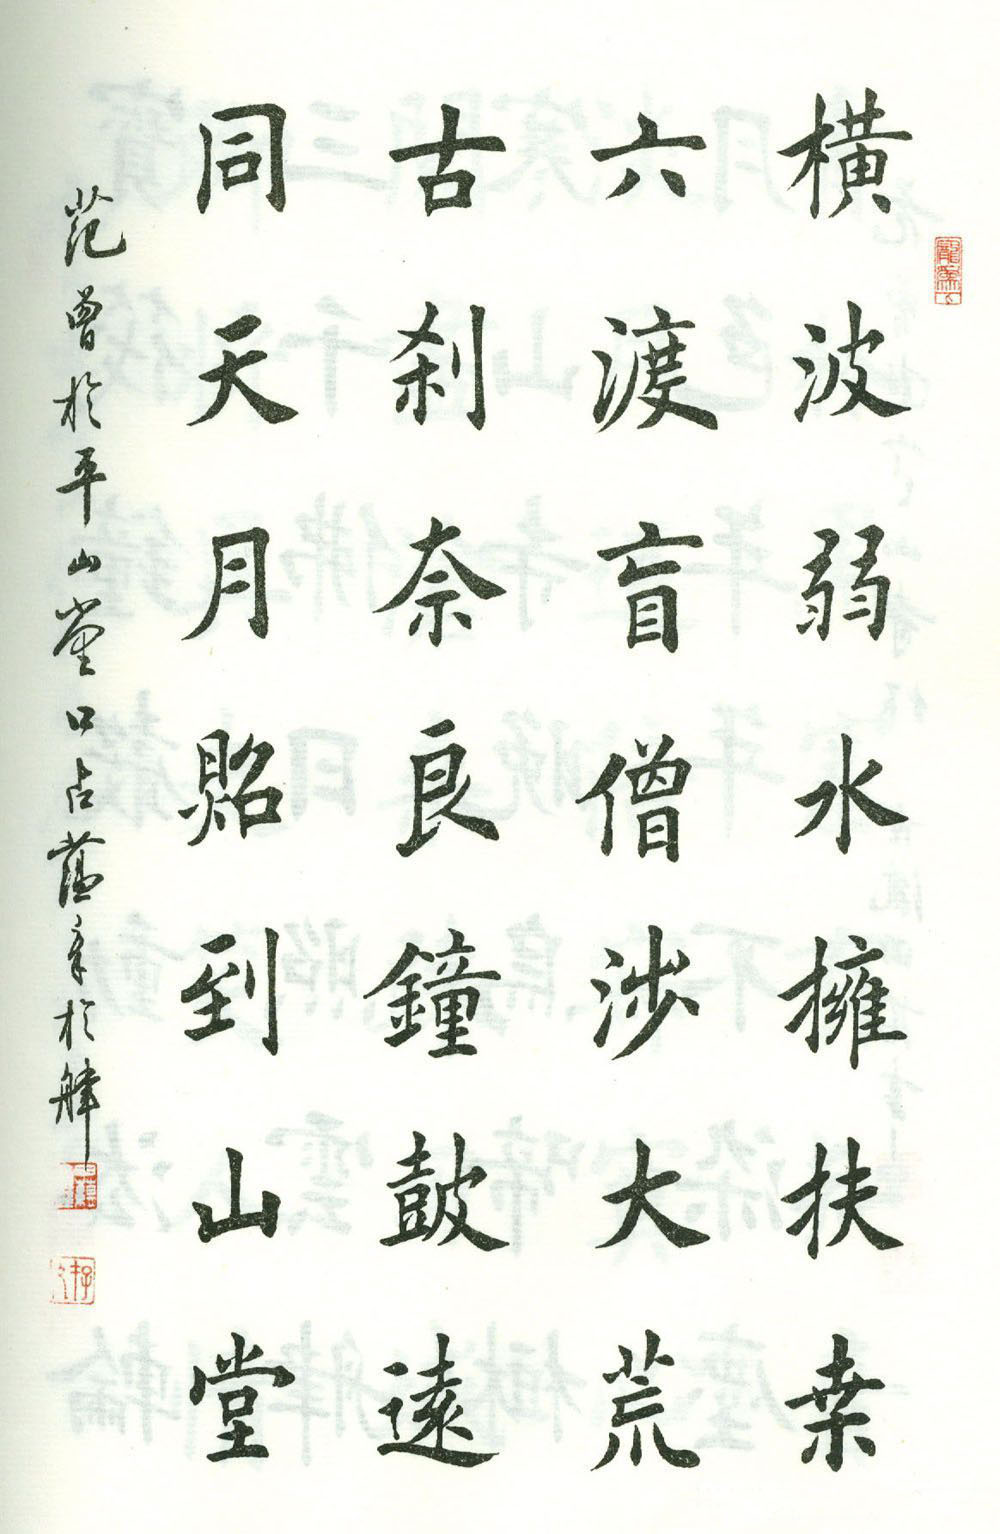 橫波弱水擁扶桒
六渡盲僧涉大荒
古刹奈良鐘鼓遠
同天月照到山堂
范曾於平山堂口占